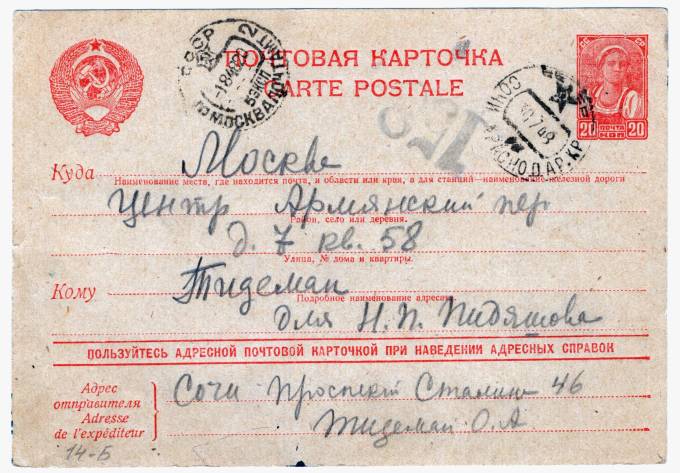 ПОЧТОВАЯ КАРТОЧКА
CARTE POSTALE
ПОЧТА
20 КОП 20
СССР
МОСКВА ПОЧТАМТ
СОЧИ
КРАСНОДАР. КР.
Куда Москва
Наименование места, где находится почта, и области или края, а для станций—наименование железной дороги
Центр Армянский пер
Район, село или деревня.
д. 7 кв. 58
Улица, № дома и квартиры.
Кому Тидеман
Подробное наименование адресата
для Н. П. Пидяшова
ПОЛЬЗУЙТЕСЬ АДРЕСНОЙ ПОЧТОВОЙ КАРТОЧКОЙ ПРИ НАВЕДЕНИИ АДРЕСНЫХ СПРАВОК
Адрес отправителя
Adresse de l'expéditeur
Сочи Проспект Сталина 46
Тидеман О. А
14-Б